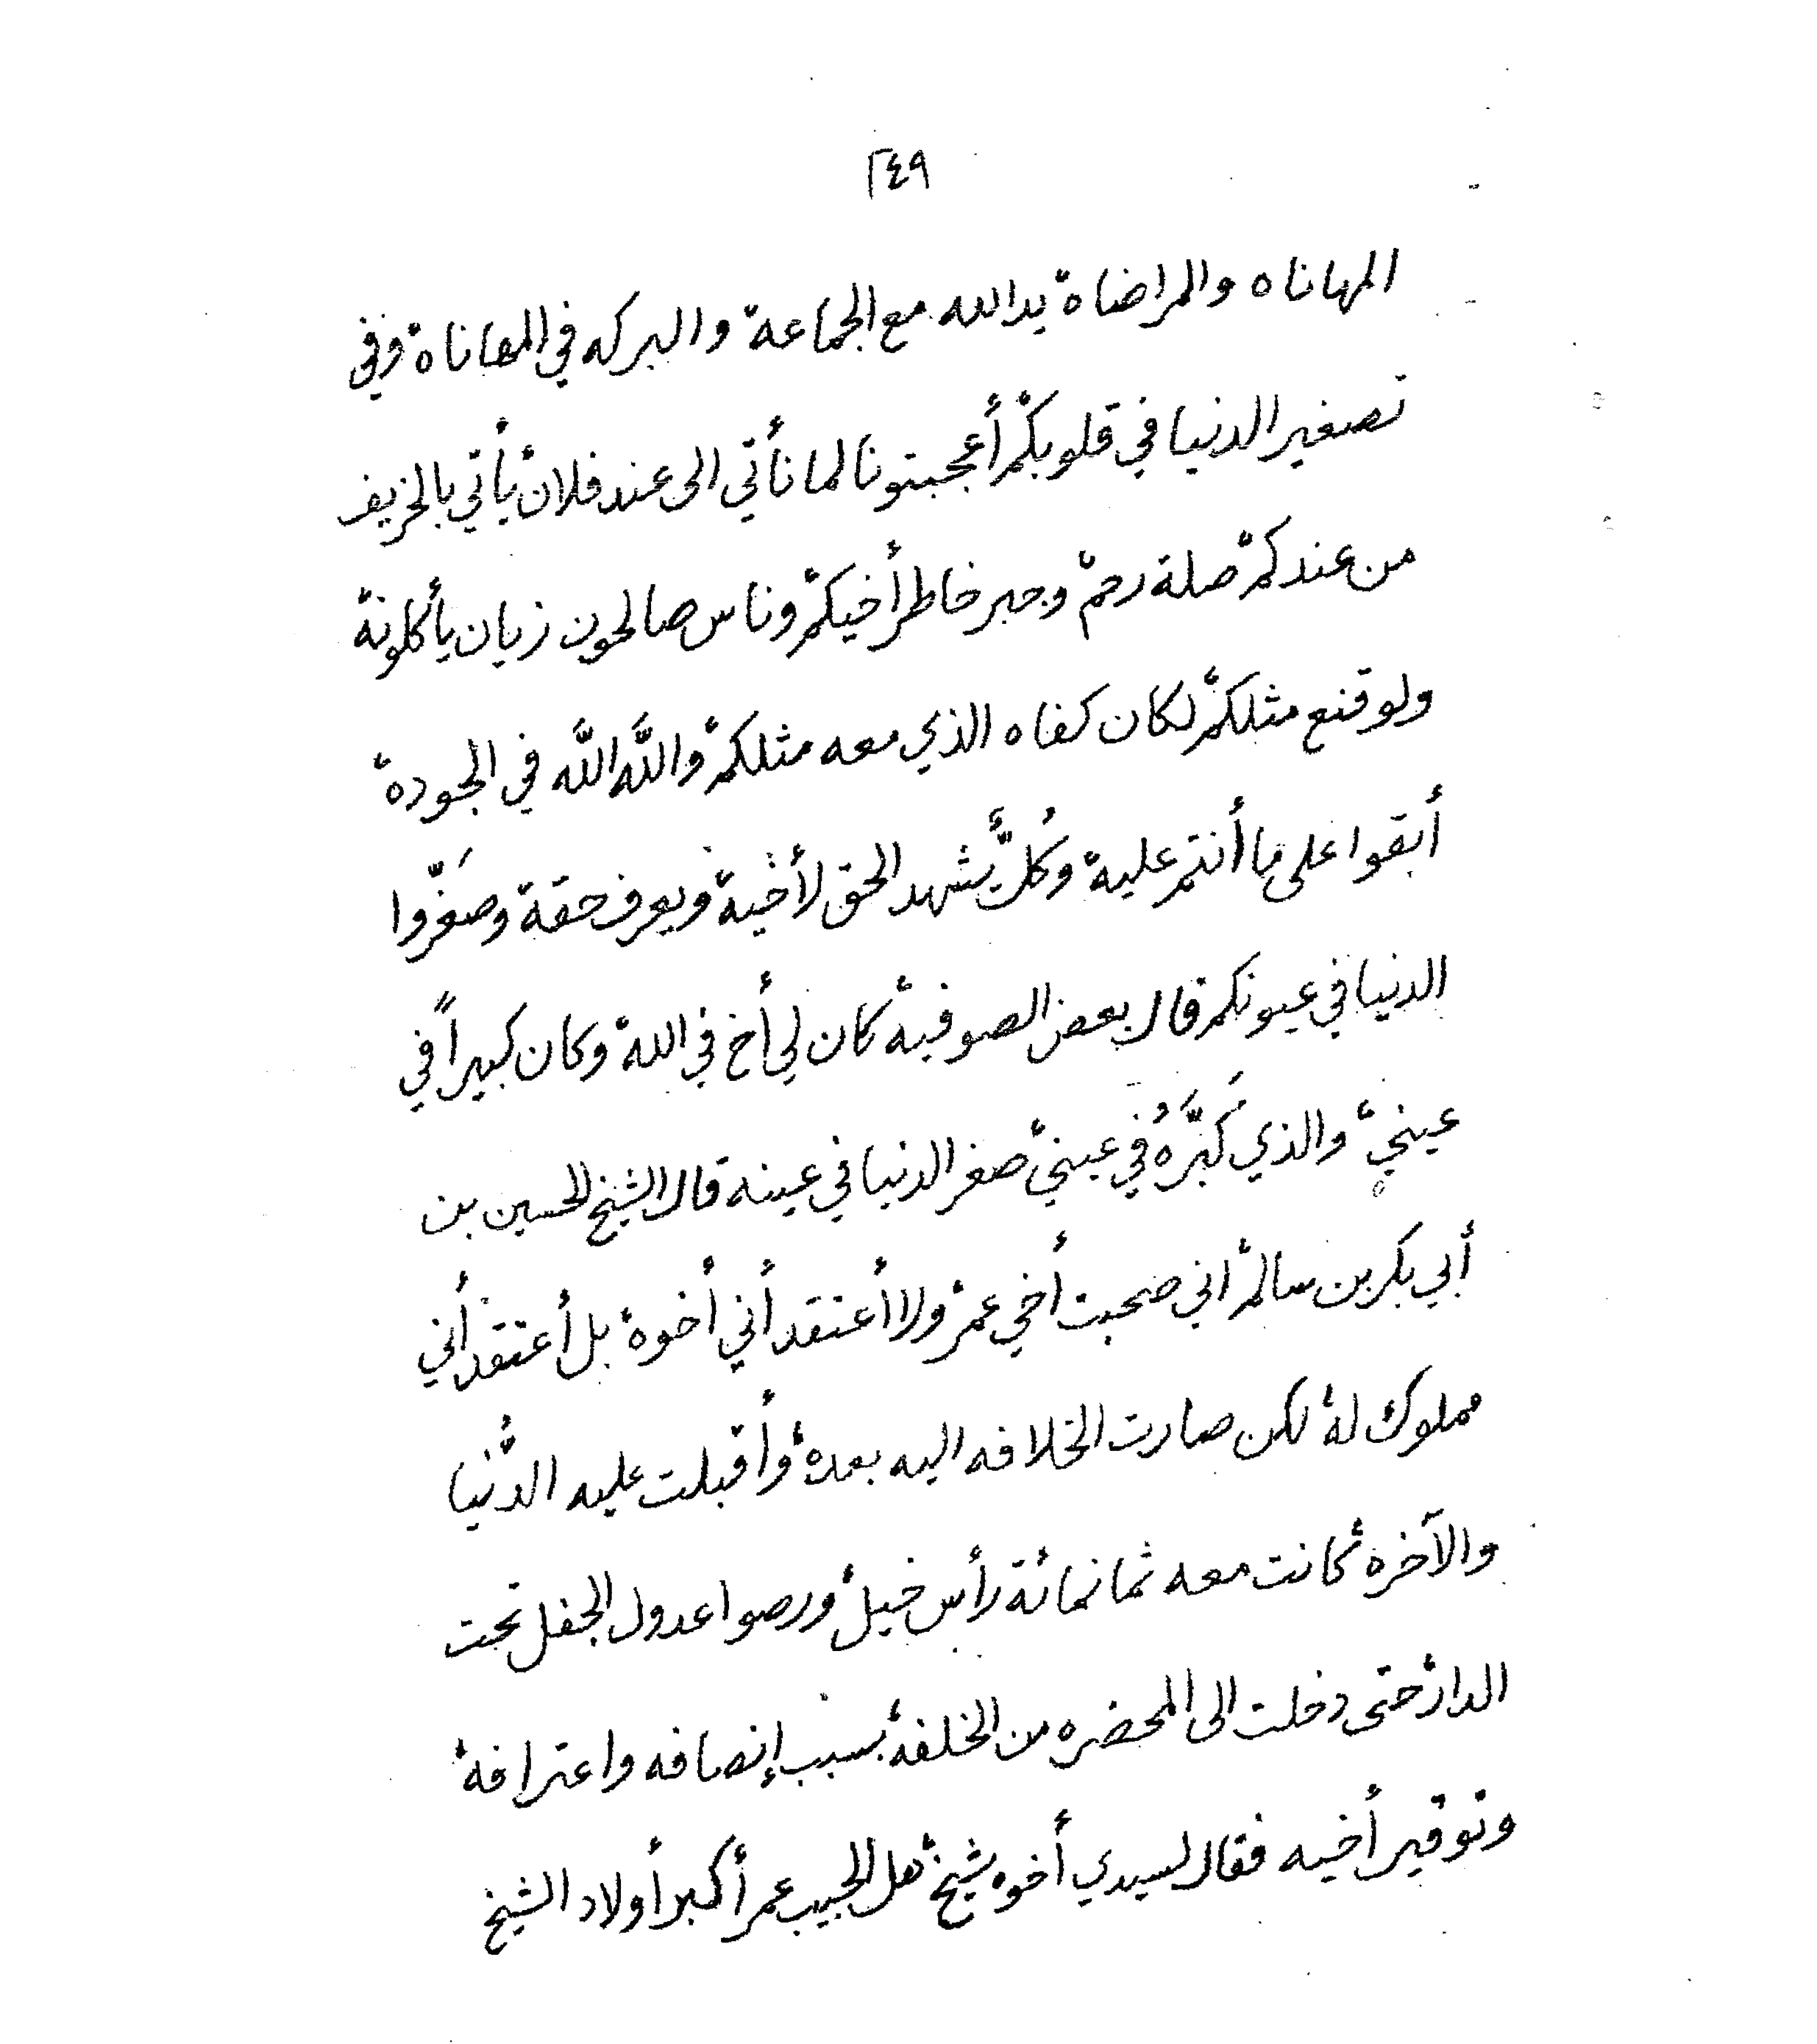 ٢٤٩
المهاناه والمراضاة يدالله مع الجماعة والبركه في المهاناة وفي
تصغير الدنيا في قلوبكم أعجبتونا لما نأتي الى عند فلان يأتي بالخريف
من عندكم صلة رحم وجبر خاطر أخيكم وناس صالحون زيان يأكلونة
ولو قنع مثلكم لكان كفاه الذي معه مثلكم والله الله في الجودة
أبقوا على ما أنتم علية وكُلٌّ يشهد الحق لأخية ويعرف حقة وصغَّروا
الدنيا في عيونكم قال بعض الصوفية كان لي أخ في الله وكان كبيراً في
عيني والذي كَبَّرَهُ في عيني صغر الدنيا في عينه قال الشيخ الحسين بن
أبي بكر بن سالم اني صحبت أخي عمر ولا أعتقد أني أخوة بل أعتقد أني
مملوك له لكن صارت الخلافه اليه بعدة وأقبلت عليه الدُّنيا
والآخره كانت معه ثمانمائة رأس خيل ورصوا عدول الجفل تحت
الدار حتى دخلت الى المحضره من الخلفة بسبب إنصافه واعترافة
وتوقير أخيه فقال لسيدي أخوه شيخ هل الحبيب عمر أكبر أولاد الشيخ